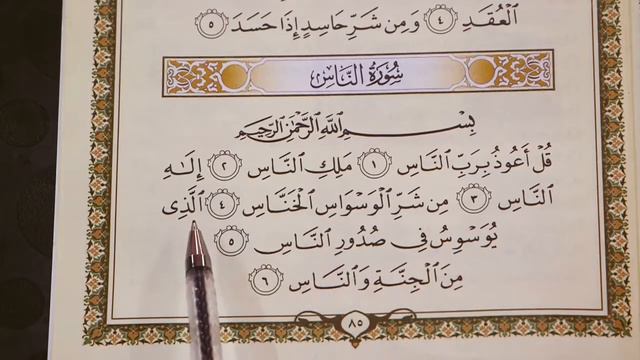 ٱلْعُقَدِ ٤ وَمِن شَرِّ حَاسِدٍ إِذَا حَسَدَ ٥
سُورَةُ النَّاسِ
بِسْمِ ٱللَّهِ ٱلرَّحْمَٰنِ ٱلرَّحِيمِ
قُلْ أَعُوذُ بِرَبِّ ٱلنَّاسِ ١ مَلِكِ ٱلنَّاسِ ٢ إِلَٰهِ
ٱلنَّاسِ ٣ مِن شَرِّ ٱلْوَسْوَاسِ ٱلْخَنَّاسِ ٤ ٱلَّذِى
يُوَسْوِسُ فِى صُدُورِ ٱلنَّاسِ ٥
مِنَ ٱلْجِنَّةِ وَٱلنَّاسِ ٦
٨٥